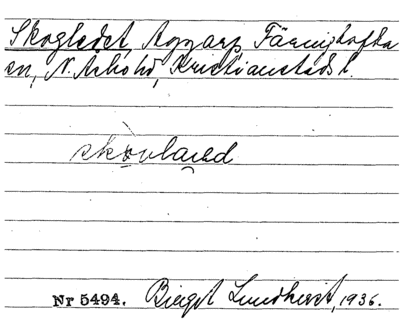 Skogledet, Aggarp, Färingtofta
sn, N. Åsbo hd, Kristianstads l.
skovlaред
Nr 5494. Birgit Lundkvist, 1936.